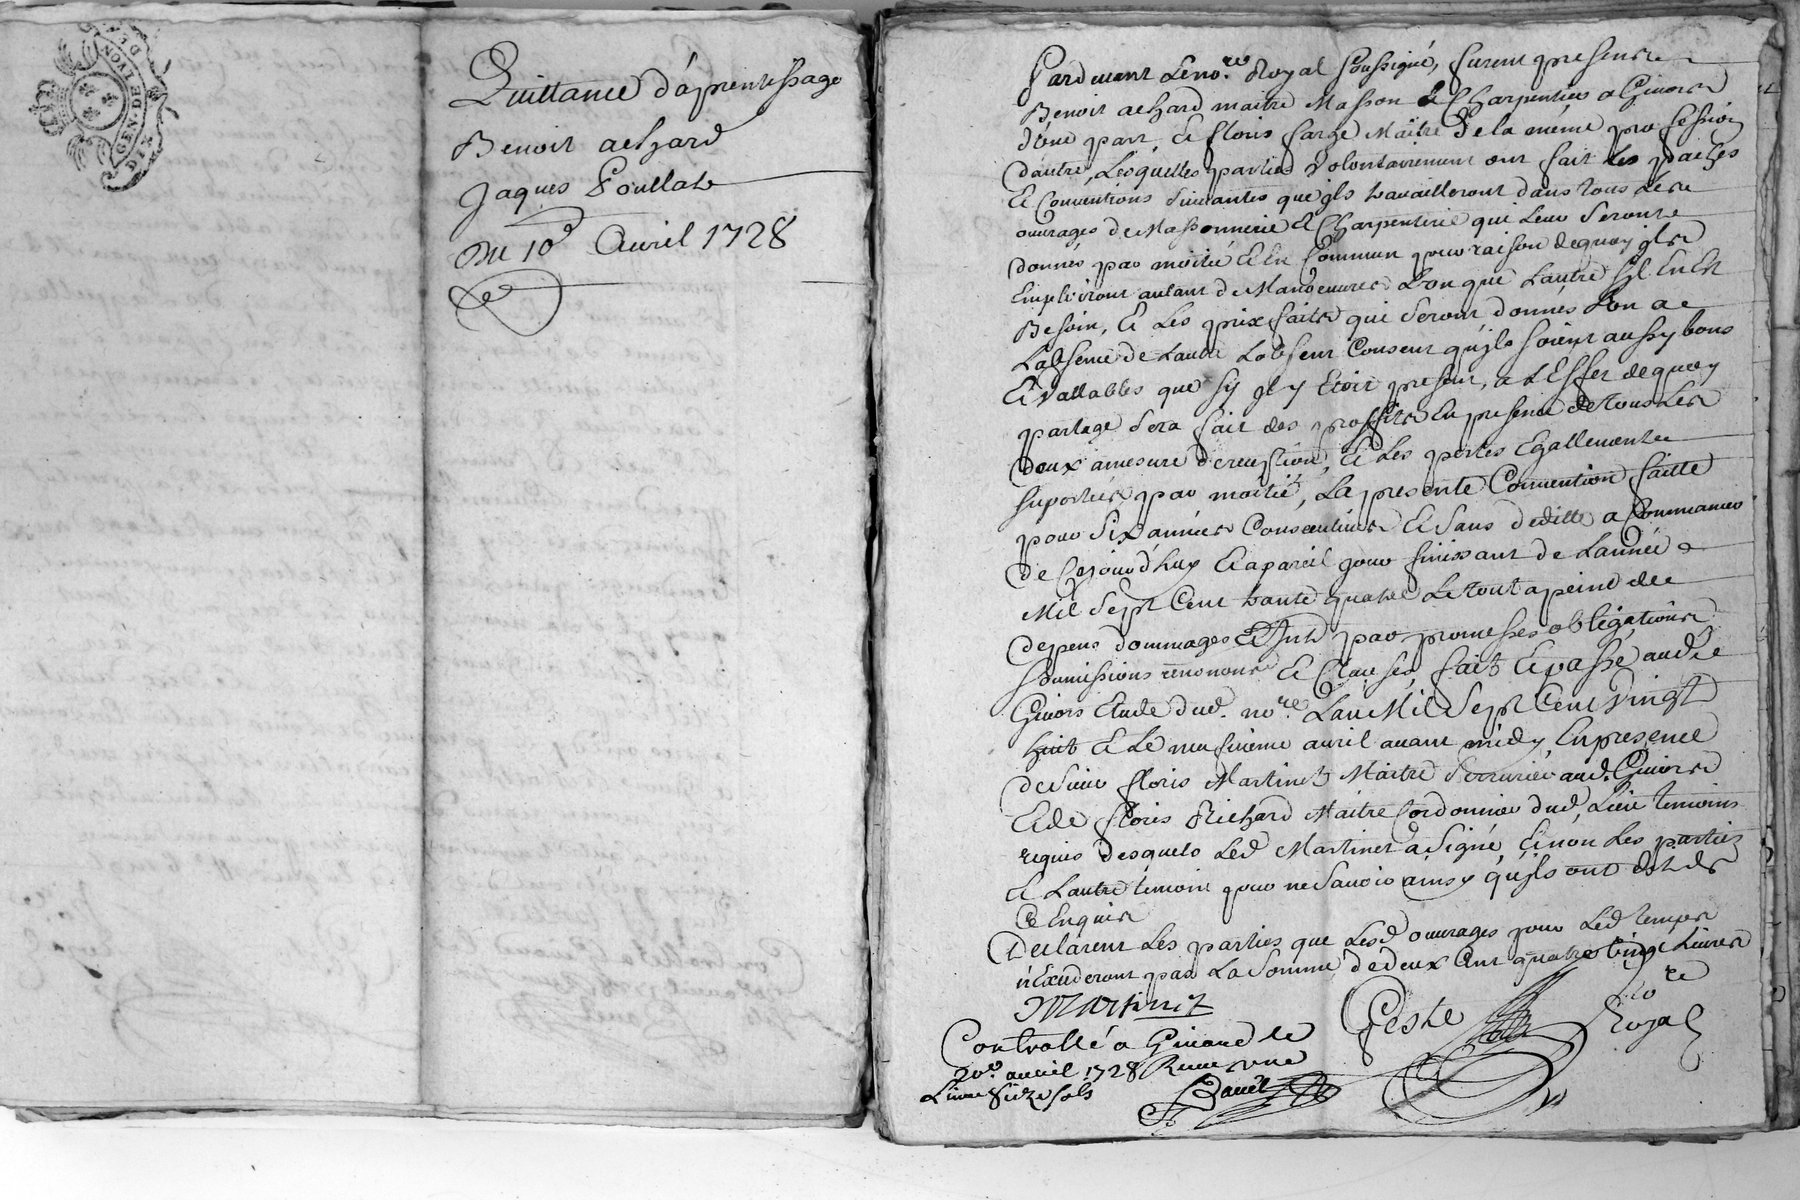 GEN·DE·LYON
DIX DE
Quittance d'aprentissage
Benoit achard
Jaques Poullat
Du 10e Avril 1728
Pardevant Le nore Royal soussigné, furent presents
Benoit achard maitre Masson & Charpentier a Givors
d'une part, et floris farge Maitre de la méme profession
dautre, Lesquelles parties volontairement ont fait les paches
Et Conventions suivantes que jls travailleront dans tous Les
ouvrages de Massonnerie Et Charpenterie qui Leur seront
donnés par moitié Et En Commun pour raison dequoy jls
Employront autant de Manoeuvres L'on que Lautre syl En Est
Besoin, Et Les prix faits qui seront donnés L'on a
Labsence de Lautre Labsent Consent qu'jls soient aussy bons
Et vallables que sy jl y Etoit present, a LEffet dequoy
partage sera fait des proffits En presence de tous Les
deux amesure d'exeqution, Et Les pertes Egallement
suportées par moitié, La presente Convention faitte
pour six années Consecutives Et sans deditte a Commancer
de Cejourd'huy Et apareil jour finissant de Lannée
Mil sept Cent trante quatre Le tout a peine de
depens dommages Et Jnts par promesses obligations
soumissions renoncons Et Clauses, fait Et passé aud.
Givors Etude dud. nore. Lan Mil sept Cent vingt
huit Et Le neufvieme avril avant midy, En presence
de sieur floris Martinet Maitre serrurier aud. Givors
Et de floris Richard Maitre Cordonnier dud. Lieu temoins
requis desquels Led Martinet a signé, Et non Les parties
Et Lautre temoin pour ne savoir ainsy qu'jls ont dit de
Ce Enquis
Declarent Les parties que Lesd ouvrages pour Led temps
n'Excederont pas La somme de deux Cent quatre vingt Livres
Martinet
Geste Nore
Royal
Controllé a Givors le
20e. avril 1728 Receu une
Livre seize sols
Bavet